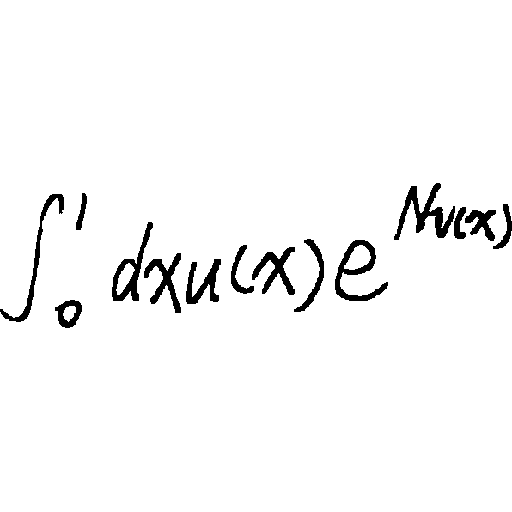 \int_0^1 dxu(x)e^{Nv(x)}